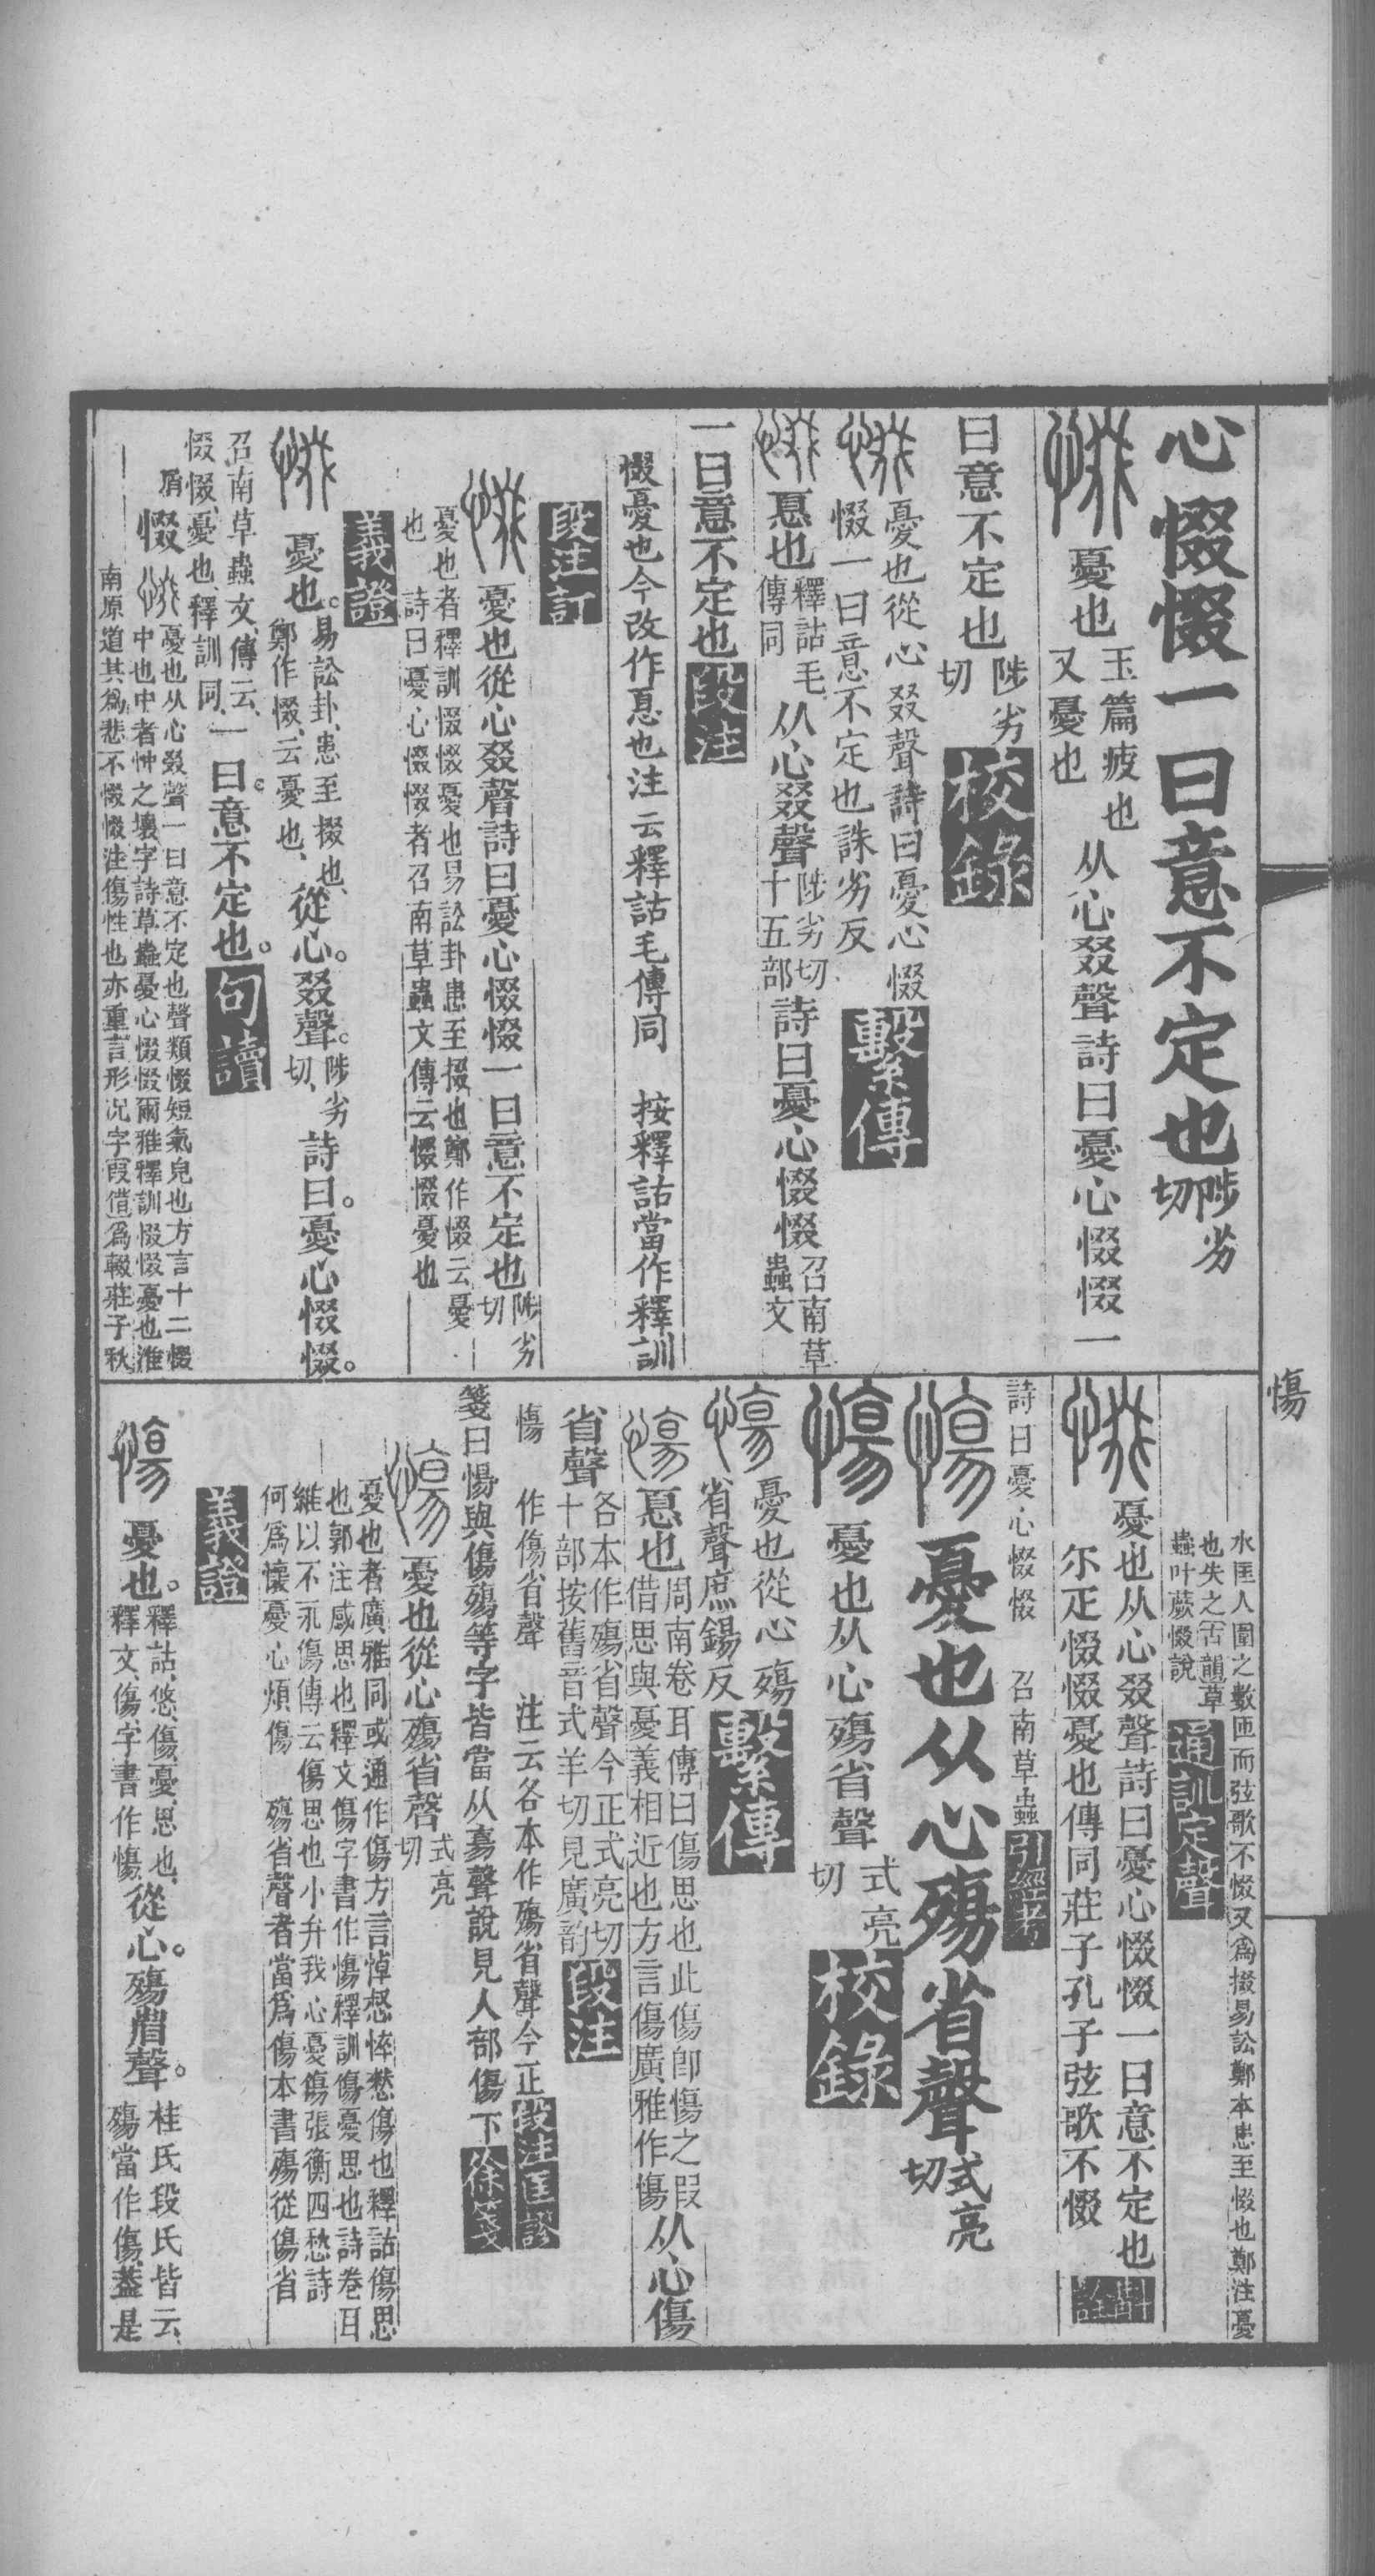 心惙惙一曰意不定也陟劣切
憂也玉篇疲也又憂也从心叕聲詩曰憂心惙惙一
曰意不定也陟劣切校錄
憂也從心叕聲詩曰憂心惙
惙一曰意不定也誅劣反繫傳
惪也釋詁毛傳同从心叕聲陟劣切十五部詩曰憂心惙惙召南草蟲文
一曰意不定也段注
惙憂也今改作惪也注云釋詁毛傳同 按釋詁當作釋訓
段注訂
憂也從心叕聲詩曰憂心惙惙一曰意不定也陟劣切
憂也者釋訓惙惙憂也易訟卦患至掇也鄭作惙云憂
也 詩曰憂心惙惙者召南草蟲文傳云惙惙憂也
義證
憂也。易訟卦、患至掇也、鄭作惙、云憂也、從心。叕聲。陟劣切、詩曰。憂心惙惙。
召南草蟲文、傳云、惙惙、憂也、釋訓同、一曰。意不定也。句讀
惙憂也从心叕聲一曰意不定也聲類惙短氣皃也方言十二惙
中也中者忡之壞字詩草蟲憂心惙惙爾雅釋訓惙惙憂也淮
南原道其爲悲不惙惙注傷性也亦重言形況字叚借爲輟莊子秋
傷
水匡人圍之數匝而弦歌不惙又爲掇易訟鄭本患至惙也鄭注憂
也失之古韻草蟲叶蕨惙說通訓定聲
憂也从心叕聲詩曰憂心惙惙一曰意不定也
尓疋惙惙憂也傳同莊子孔子弦歌不惙斠詮
詩曰憂心惙惙 召南草蟲引經考
憂也从心殤省聲式亮切
憂也从心殤省聲式亮切校錄
憂也從心殤
省聲庶錫反繫傳
惪也周南卷耳傳曰傷思也此傷卽慯之叚借思與憂義相近也方言傷廣雅作慯从心傷
省聲各本作殤省聲今正式亮切十部按舊音式羊切見廣韵段注
慯 作傷省聲 注云各本作殤省聲今正段注匡謬
箋曰慯與傷殤等字皆當从昜聲說見人部傷下徐箋
憂也從心殤省聲式亮切
憂也者廣雅同或通作傷方言悼惄悴憖傷也釋詁傷思
也郭注感思也釋文傷字書作慯釋訓傷憂思也詩卷耳
維以不永傷傳云傷思也小弁我心憂傷張衡四愁詩
何爲懷憂心煩傷 殤省聲者當爲傷本書殤從傷省
義證
憂也。釋詁、悠、傷、憂、思也、釋文、傷、字書作慯、從心。殤省聲。桂氏段氏皆云、殤當作傷、葢是